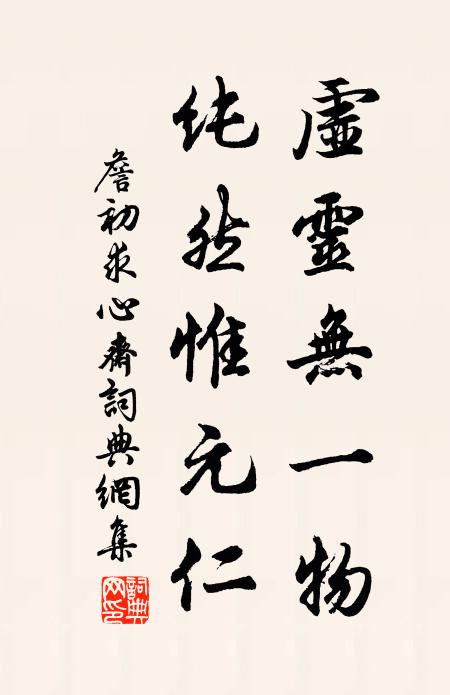 虛靈無一物
純然惟元仁
詹初求心齋詞典網集
詞典網印